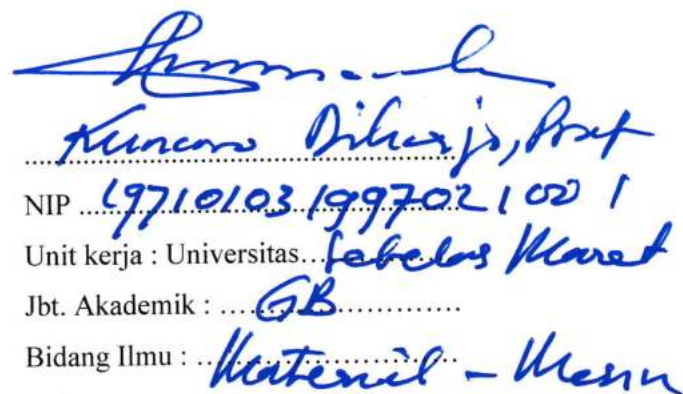 Kuncoro Diharjo, Prof
NIP 19710103 199702 1 001
Unit kerja : Universitas Sebelas Maret
Jbt. Akademik : GB
Bidang Ilmu : Material - Mesin